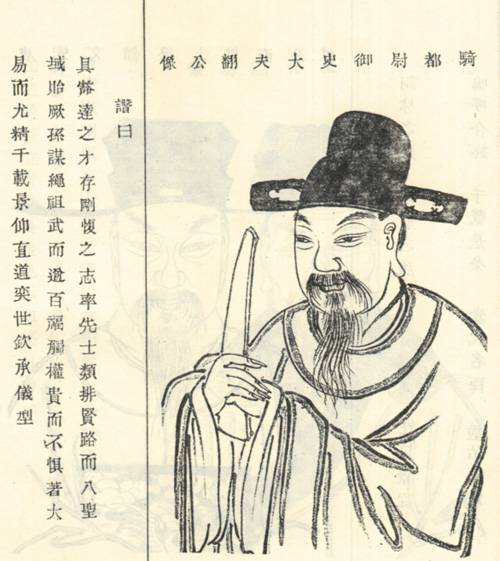 騎都尉御史大夫翻公像
讚曰
具達之才存剛愎之志率先士類排賢路而入聖
域貽厥孫謀繩祖武而邀百福觸權貴而不懼著大
易而尤精千載景仰直道奕世欽承儀型